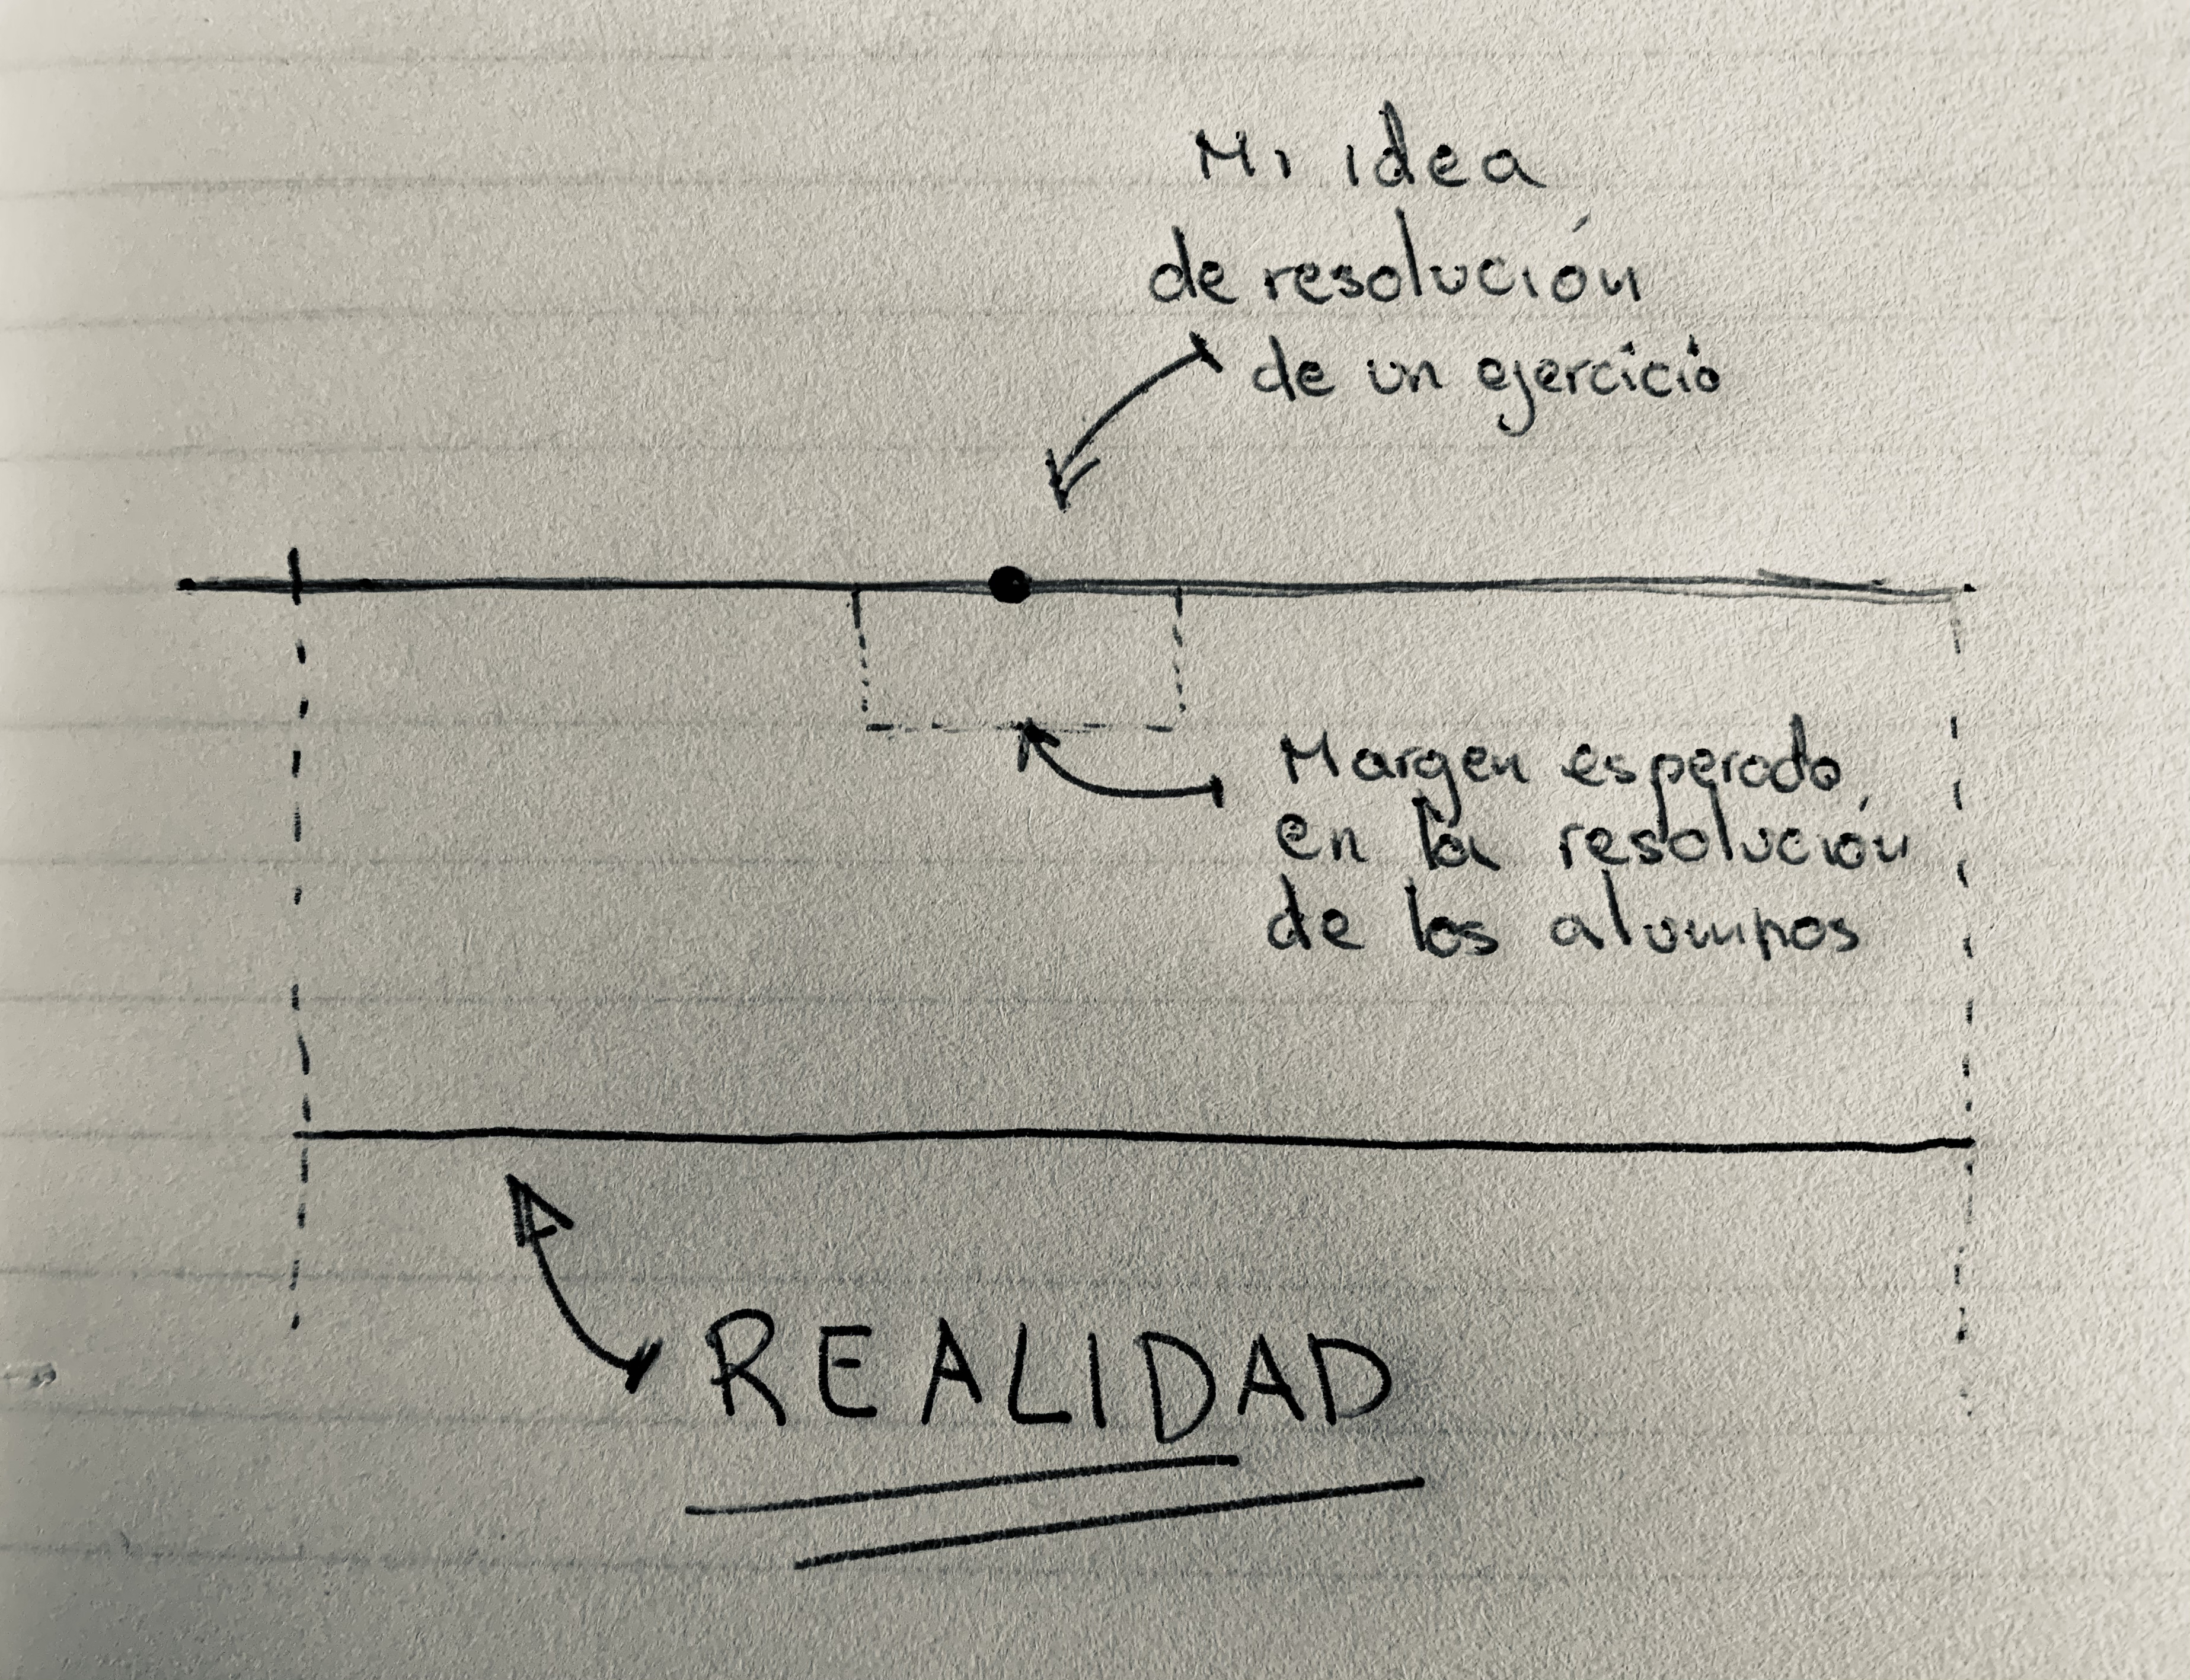 Mi idea
de resolución
de un ejercicio
Margen esperado
en la resolución
de los alumnos
REALIDAD